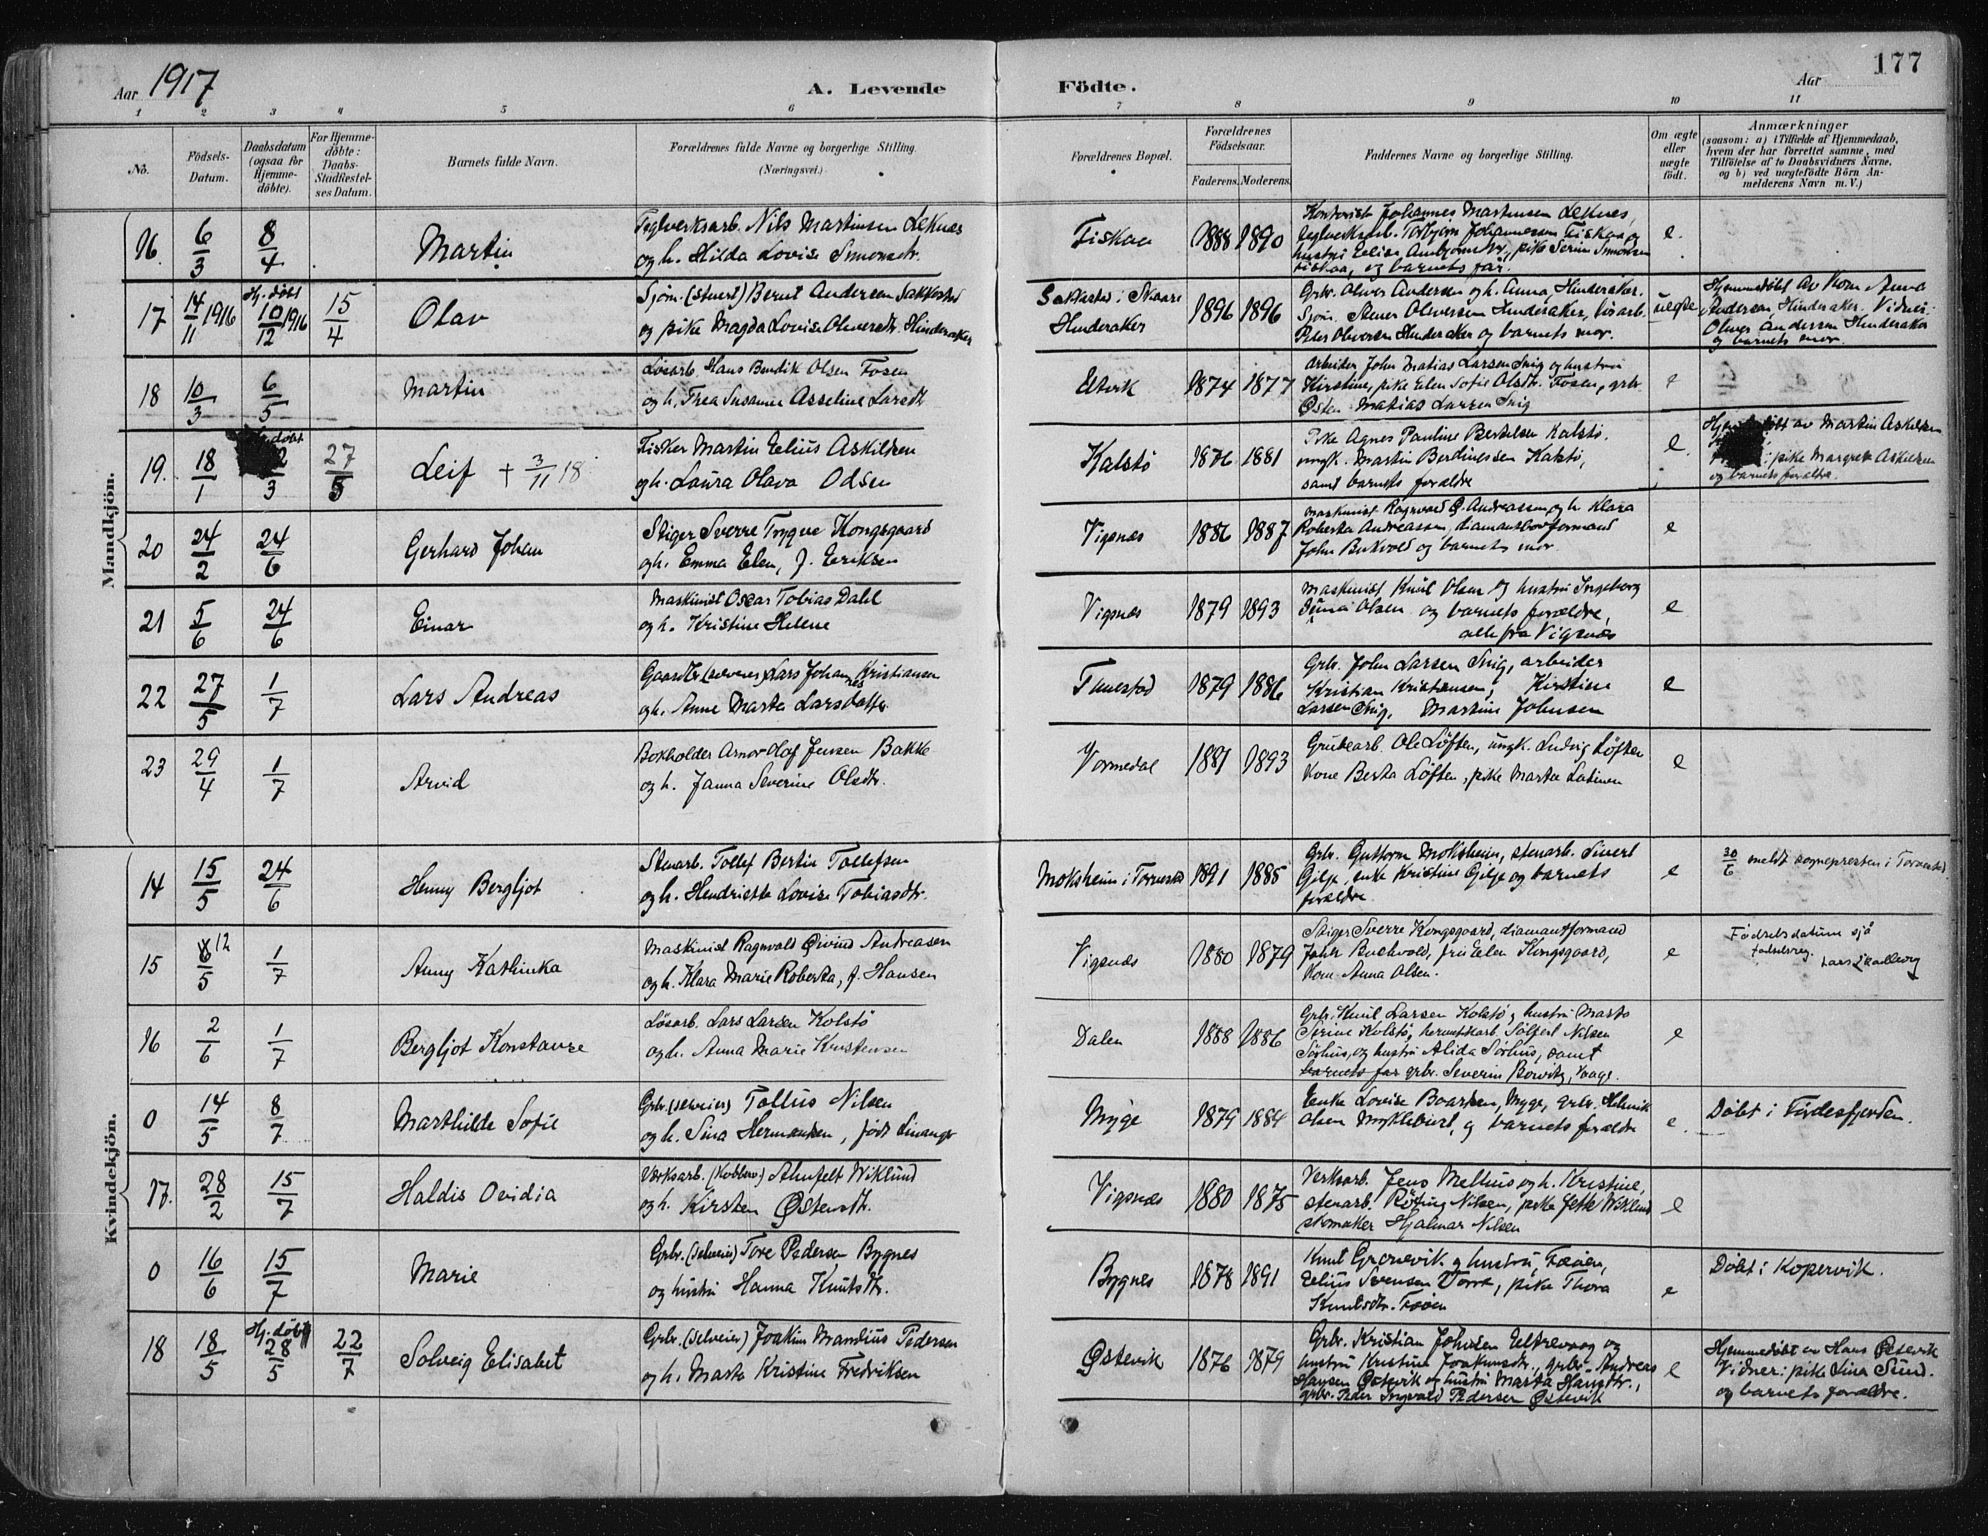 Aar 1917
A. Levende
Födte.
Aar
177
1 2 3 4 5 6 7 8 9 10 11
No.
Födsels-Datum.
Daabsdatum (ogsaa for Hjemme-döbte).
For Hjemme-döbte: Daabs-Stadfæstel-ses Datum.
Barnets fulde Navn.
Forældrenes fulde Navne og borgerlige Stilling.
(Næringsvei.)
Forældrenes Bopæl.
Forældrenes Födselsaar.
Faderens. Moderens.
Faddernes Navne og borgerlige Stilling.
Om ægte eller uægte födt.
Anmærkninger
(saasom: a) i Tilfælde af Hjemmedaab, hvem der har forrettet samme, med Tilföielse af to Daabsvidners Navne, og b) ved uægtefödte Börn An-melderens Navn m. V.)
Mandkjön.
16. 6/3 8/4 Martin
Teglverksarb. Nils Martinsen Leknes
og h. Hilda Lovise Simonsdtr.
Fiskaa 1888 1890
Kontorist Johannes Martinsen Leknes,
og barnets far.
e.
17 14/11 1916 Hj. døbt 10/12 1916 15/4 Olav
Sjøm. (stuert) Bernt Andersen Sakkestad
og pike Magda Lovise Oliversdtr. Hinderaker
Sakkestad i Skaare
Hinderaker
1896 1896
Grbr. Oliver Andersen og h. Anna, Hinderaker.
Sjøm. Stener Oliversen Hinderaker, løsarb.
Peder Oliversen Hinderaker og barnets mor.
uegte
Hjemmedøbt av Kone Anna
Andersen, Hinderaker. Vidner:
Oliver Andersen Hinderaker
og barnets mor.
18 10/3 6/5 Martin
Løsarb. Hans Bendik Olsen Fosen
og h. Thea Susanne Asseline Larsdtr.
Eltvik 1874 1877
Arbeider John Matias Larsen Snig og hustru
Kirstine, pike Elen Sofie Olsdtr. Fosen, grbr.
Østen Matias Larsen Snig
e
19. 18/1 døbt 3 27/5 Leif + 3/11 18
Fisker Martin Elius Askildsen
og h. Laura Olava Odsen
Kalstø 1876 1881
Pike Agnes Pauline Bertelsen Kalstø,
ungk. Martin Berdinessen Kalstø,
samt barnets forældre
e.
av Martin Askildsen
pike Margrete Askildsen
og barnets forældre.
20 24/2 24/6 Gerhard Johan
Stiger Sverre Trygve Kongsgaard
og h. Emma Elen, f. Eriksen
Vigsnæs 1886 1887
Maskinist Ragnvald Ø. Andreassen og h. Klara
Roberta Andreassen, diamantborformand
John Bukvold og barnets mor.
e
21 5/6 24/6 Einar
Maskinist Oscar Tobias Dahl
og h. Kristine Helene
Vigsnæs 1879 1893
Maskinist Knut Olsen og hustru Ingeborg
Olsen og barnets forældre,
alle fra Vigsnæs
e
22 27/5 1/7 Lars Andreas
Gaardbr. (selveier) Lars Johannes Kristiansen
og h. Anne Marta Larsdatter
Tunestad 1879 1886
Grbr. John Larsen Snig, arbeider
Kristian Kristiansen, Kirstine
Larsen Snig, Martine Johnsen
e
23 29/4 1/7 Arvid
Bokholder Arnor Olaf Jensen Bakke
og h. Janna Severine Olsdtr.
Vormedal 1881 1893
Grubearb. Ole Løften, ungk. Ludvig Løften
Kone Berta Løften, pike Marta
e
Kvindekjön.
14 15/5 24/6 Henny Bergljot
Stenarb. Tollef Bertin Tollefsen
og h. Hendriette Lovise Tobiasdtr.
Moksheim i Torvestad 1891 1885
Grbr. Guttorm Moksheim, stenarb. Sivert
Gilje, enke Kristine Gilje og barnets
forældre
e
30/6 meldt sognepresten i Torvestad.
15 12/5 1/7 Anny Kathinka
Maskinist Ragnvald Øivind Andreasen
og h. Klara Marie Roberta, f. Hansen
Vigsnæs 1880 1879
Stiger Sverre Kongsgaard, diamantformand
John Buchvold, fru Elen Kongsgaard,
Kone Anna Olsen.
e
Fødselsdatum sjå
fødselsreg.
16 2/6 1/7 Bergljot Konstanse
Løsarb. Lars Larsen Kolstø
og h. Anna Marie Kristensen
Dalen 1888 1886
Grbr. Knut Larsen Kolstø og hustru Marta
Serine Kolstø, hermetikkarb. Nilsen
Sørhus, og hustru Alida Sørhus, samt
barnets far grbr. Severin
e
0 14/5 8/7 Marthilde Sofie
Grbr. (selveier) Tollius Nilsen
og h. Sina Hermansen, født
Myge 1879 1884
Enke Lovise Boardsen, Myge, grbr. Henrik
Olsen Myklebust, og barnets forældre
e.
Døbt i Førdesfjorden.
17. 28/2 15/7 Haldis Ovidia
Verksarb. (Kobber) Wiklund
og h. Kirsten Østensdtr.
Vigsnæs 1880 1875
Verksarb. Jens Melhus og h. Kristine,
stenarb. Nilsen, pike Wiklund
skomaker Hjalmar Nilsen
e
0 16/6 15/7 Marie
Grbr. (selveier) Tore Pedersen Bygnes
og hustru Hanna Knutsdtr.
Bygnes 1878 1891
Knut Grønnevik og hustru, Fæøen,
Elius Svensen, pike Thora
Knutsdtr. Fæøen
e
Døbt i Kopervik.
18 18/5 Hj. døbt 28/5 22/7 Solveig Elisabet
Grbr. (selveier) Joakim Mandius Pedersen
og h. Marta Kristine Fredriksen
Østevik 1876 1879
Grbr. Kristian Johnsen Eltrevaag og
hustru Kristine Joakimsdtr., grbr. Andreas
Hansen Østevik og hustru Marta Hansdtr.,
grbr. Peder Ingvald Pedersen Østevik
e
Hjemmedøbt av Hans Østevik
Vidner: pike Lina Sund.
og barnets forældre.